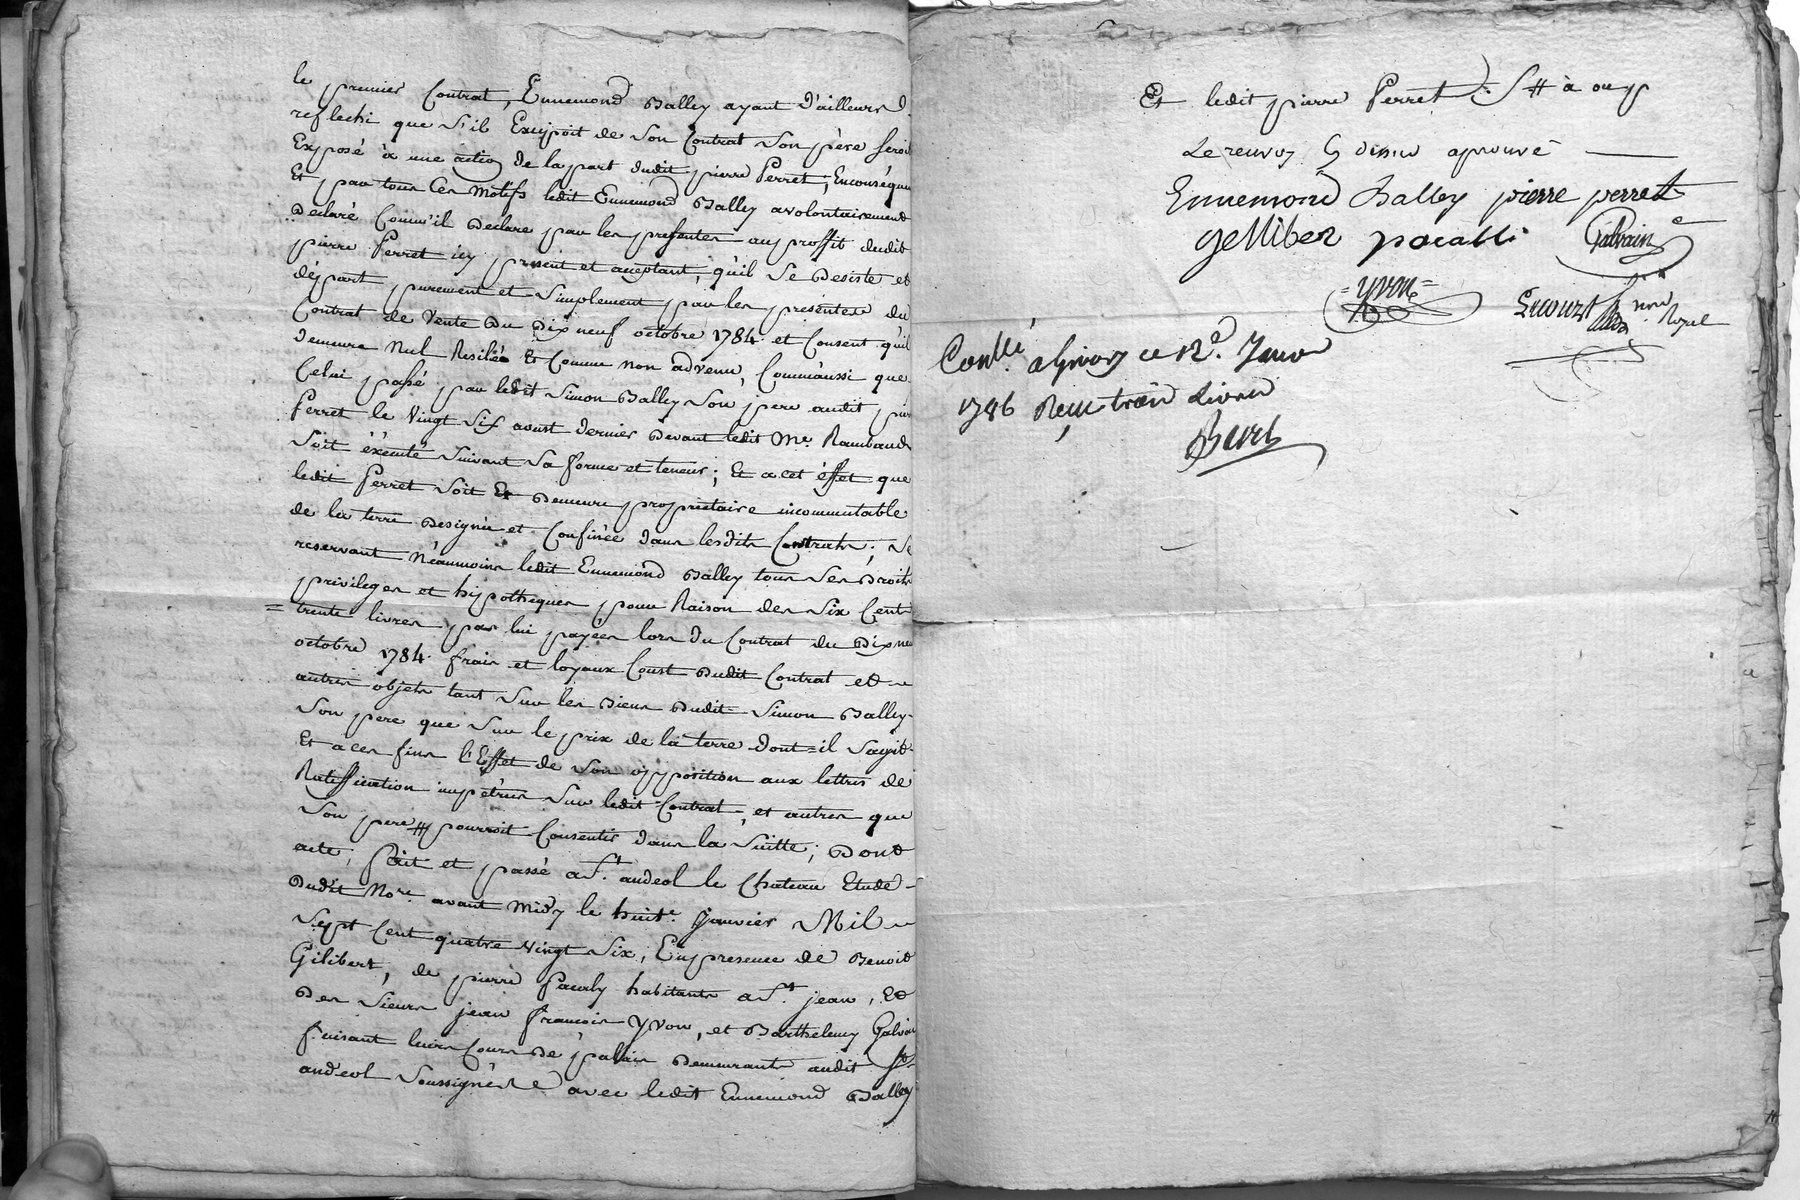 le premier Contrat, Ennemond Balley ayant d'ailleurs
reflechi que s'il Excipoit de son Contrat son père seroit
Exposé à une action de la part dudit pierre Perret; Enconséquen
Et par tous Ces motifs ledit Ennemond Balley a volontairement
Declaré Comm'il Declare par les presentes au proffit dudit
pierre Perret icy present et acceptant, qu'il se Desiste et
départ purement et simplement par les présentes du
Contrat de Vente Du Dix neuf octobre 1784. et Consent qu'il
demeure Nul Resilié Et Comme non advenu, Comm'aussi que
Celui passé par ledit Simon Balley son pere audit pier
Perret le Vingt Six aoust dernier Devant ledit Me. Rambaud
soit éxécuté suivant sa forme et teneur; Et a cet éffet que
ledit Perret soit Et Demeure propriétaire incommutable
de la terre Designée et Confinée dans lesdits Contrats; se
reservant Néaumoins ledit Ennemond Balley tous ses Droits
privileges et hypotheques pour Raison des Six Cent
= trente livres par lui payées lors du Contrat du Dix neu
octobre 1784. frais et loyaux Coust Dudit Contrat et
autres objets tant sur les Biens Dudit Simon Balley
son pere que sur le prix de la terre dont il s'agit
Et a ces fins l'Effet de son opposition aux lettres de
Ratiffication impétrées sur ledit Contrat, et autres que
son pere # pourroit Consentir dans la suitte; Dont
acte; fait et passé a St. andeol le Chateau Etude
Dudit Nore. avant midy le huite. Janvier Mil
Sept Cent quatre Vingt Six, En presence de Benoit
Gilibert, de pierre Pacaly habitants a St. jean, Et
Des sieurs jean francois Yvon, et Barthelemy Galvain
faisant leurs Cours De palais Demeurants audit St.
andeol soussignés avec ledit Ennemond Balley
Et ledit pierre Perret. # à ou p
Le renvoy Cy dessus aprouvé
Ennemond Balley pierre perret
gelliber pacalli Galvain
= yvon =
Lecourt nore Royal
Conllé. a Givors ce 12e. Janv
1786 Reçu